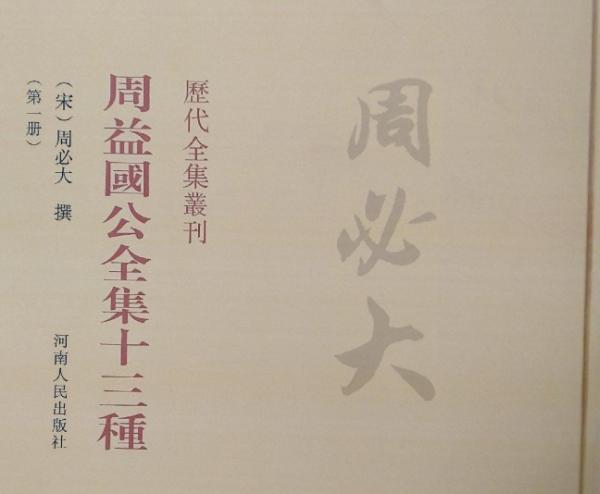 周必大
歷代全集叢刊
周益國公全集十三種
（宋）周必大 撰
（第一册）
河南人民出版社